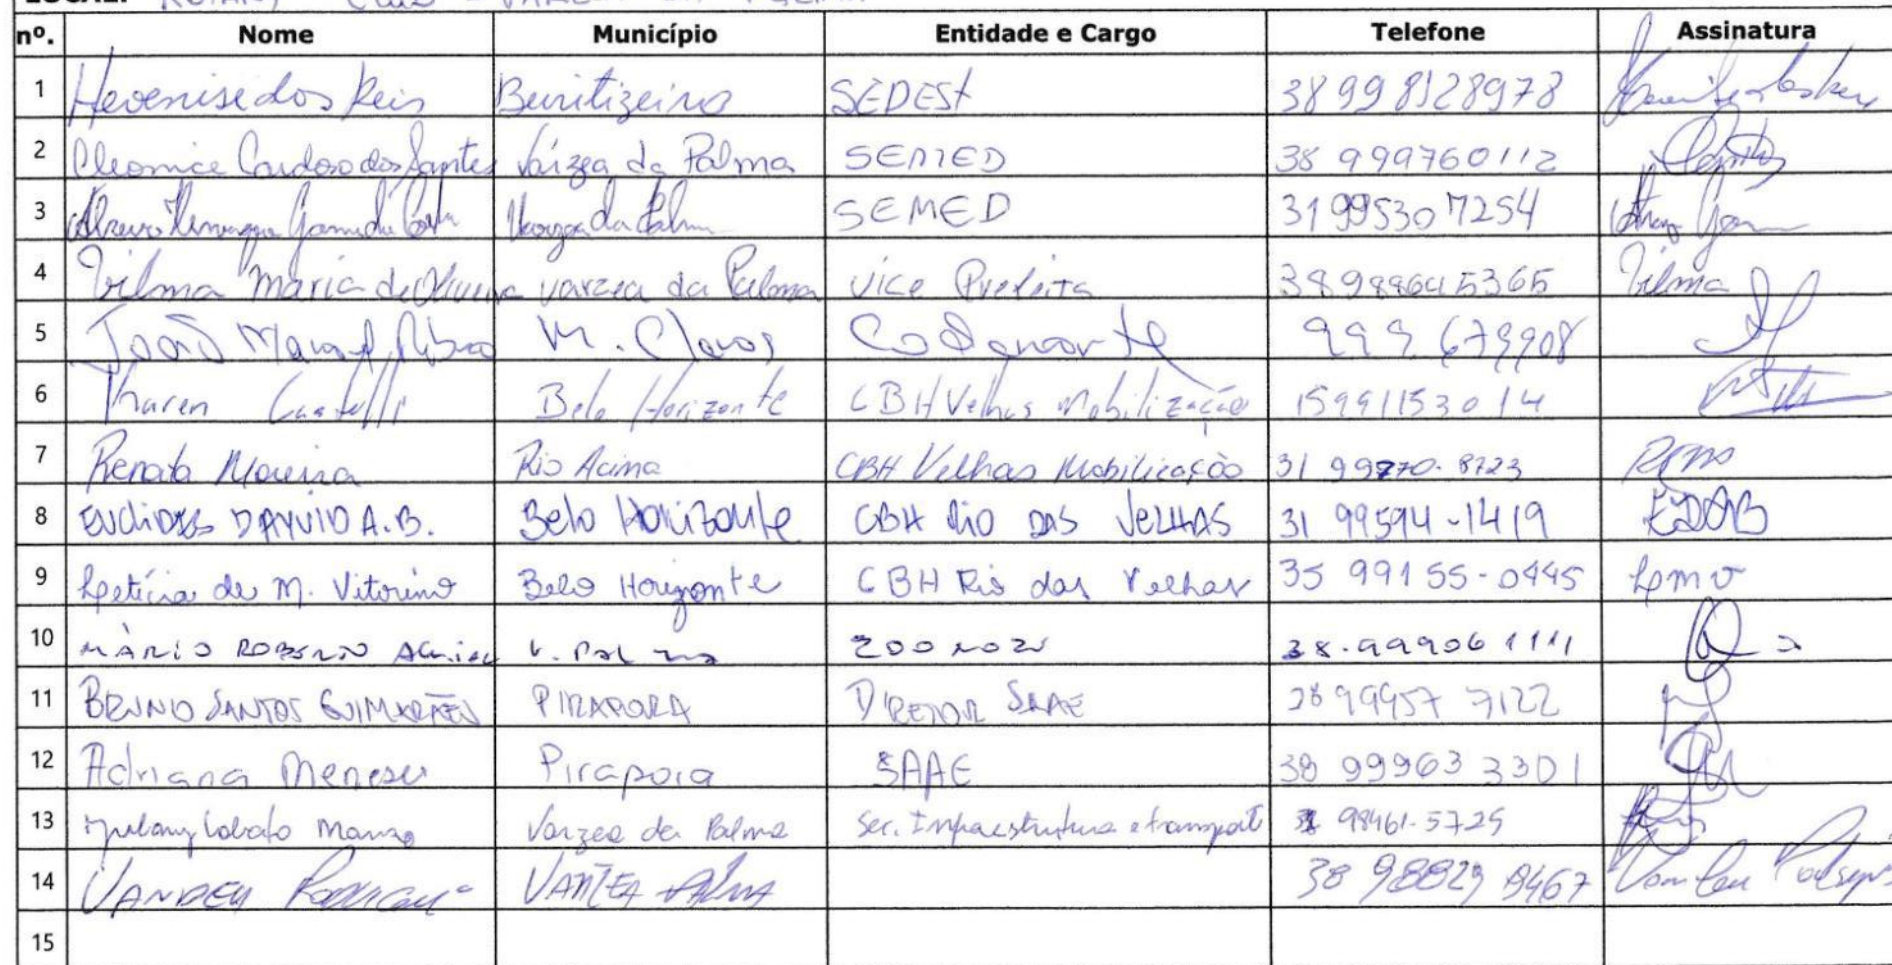 LOCAL: ROTARY Club - VARZEA DA PALMA
nº. Nome Município Entidade e Cargo Telefone Assinatura
1 Hevenise dos Reis Buritizeiro SEDEST 38 998128978
2 Cleonice Cardoso dos Santos Várzea da Palma SEMED 38 999760112
3 Varzea da Palma SEMED 31 995307254
4 Vilma Maria de Oliveira varzea da Palma Vice Prefeita Vilma
5 João Manoel Ribeiro M. Claros Codanorte 999.679908
6 Tharen Castelli Belo Horizonte CBH Velhas Mobilização 15991153014
7 Renata Moreira Rio Acima CBH Velhas Mobilização 31 99770-8723
8 EUCLIDES DAYVID A.B. Belo Horizonte CBH Rio DAS VELHAS 31 99594-1419 EDAB
9 Letícia de M. Vitorino Belo Horizonte CBH Rio das Velhas 35 99155-0445 Lpmv
10 MÁRIO ROBERTO V. Palma 38.999061111
11 BRUNO SANTOS GUIMARÃES PIRAPORA DIRETOR SAAE 38 99957 7122
12 Adriana Meneses Pirapora SAAE 38 99963 3301
13 Lobato Varzea da Palma Sec. Infraestrutura e transporte 98461-5725
14 VANDEU VARZEA PALMA 38 98829 9467
15